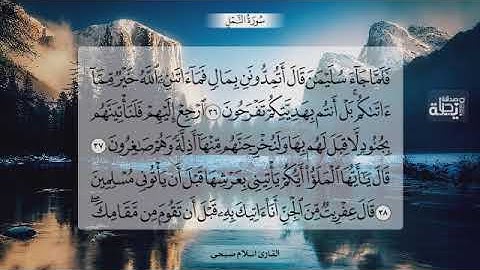 سُورَةُ النَّمْلِ
فَلَمَّا جَآءَ سُلَيْمَٰنَ قَالَ أَتُمِدُّونَنِ بِمَالٍ فَمَآ ءَاتَىٰنِۦَ ٱللَّهُ خَيْرٌ مِّمَّآ
ءَاتَىٰكُم بَلْ أَنتُم بِهَدِيَّتِكُمْ تَفْرَحُونَ ٣٦ ٱرْجِعْ إِلَيْهِمْ فَلَنَأْتِيَنَّهُم
بِجُنُودٍ لَّا قِبَلَ لَهُم بِهَا وَلَنُخْرِجَنَّهُم مِّنْهَآ أَذِلَّةً وَهُمْ صَٰغِرُونَ ٣٧
قَالَ يَٰٓأَيُّهَا ٱلْمَلَؤُا۟ أَيُّكُمْ يَأْتِينِى بِعَرْشِهَا قَبْلَ أَن يَأْتُونِى مُسْلِمِينَ
٣٨ قَالَ عِفْرِيتٌ مِّنَ ٱلْجِنِّ أَنَا۠ ءَاتِيكَ بِهِۦ قَبْلَ أَن تَقُومَ مِن مَّقَامِكَ ۖ
القارئ اسلام صبحي
صدقة